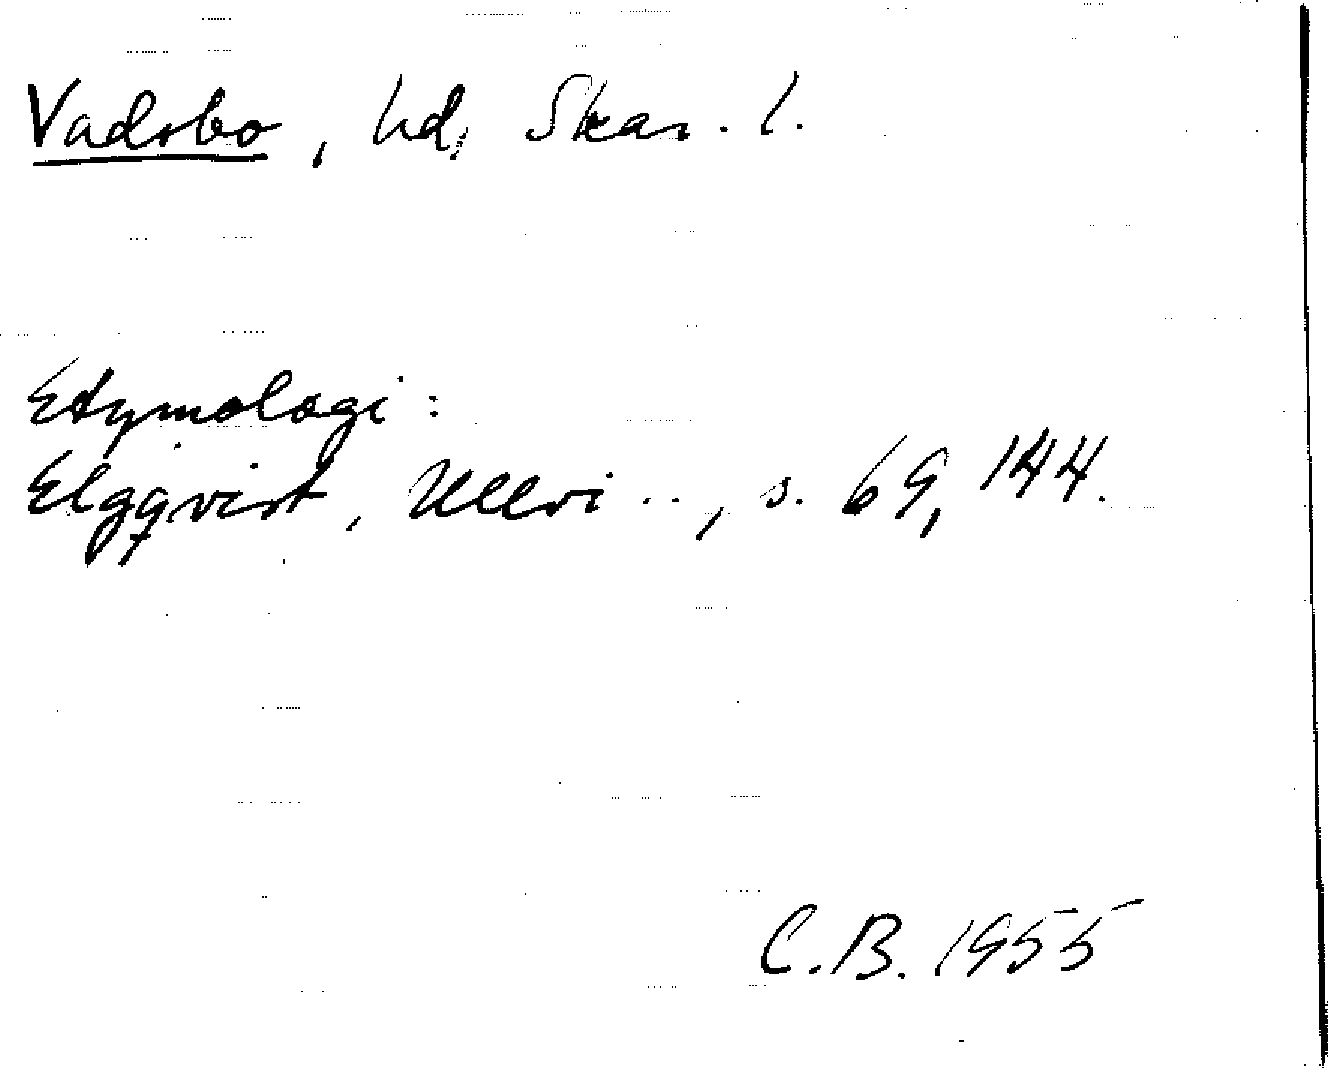 Vadsbo, hd, Skar. l.
Etymologi:
Elgqvist, Ullvi .., s. 69, 144.
C.B. 1955